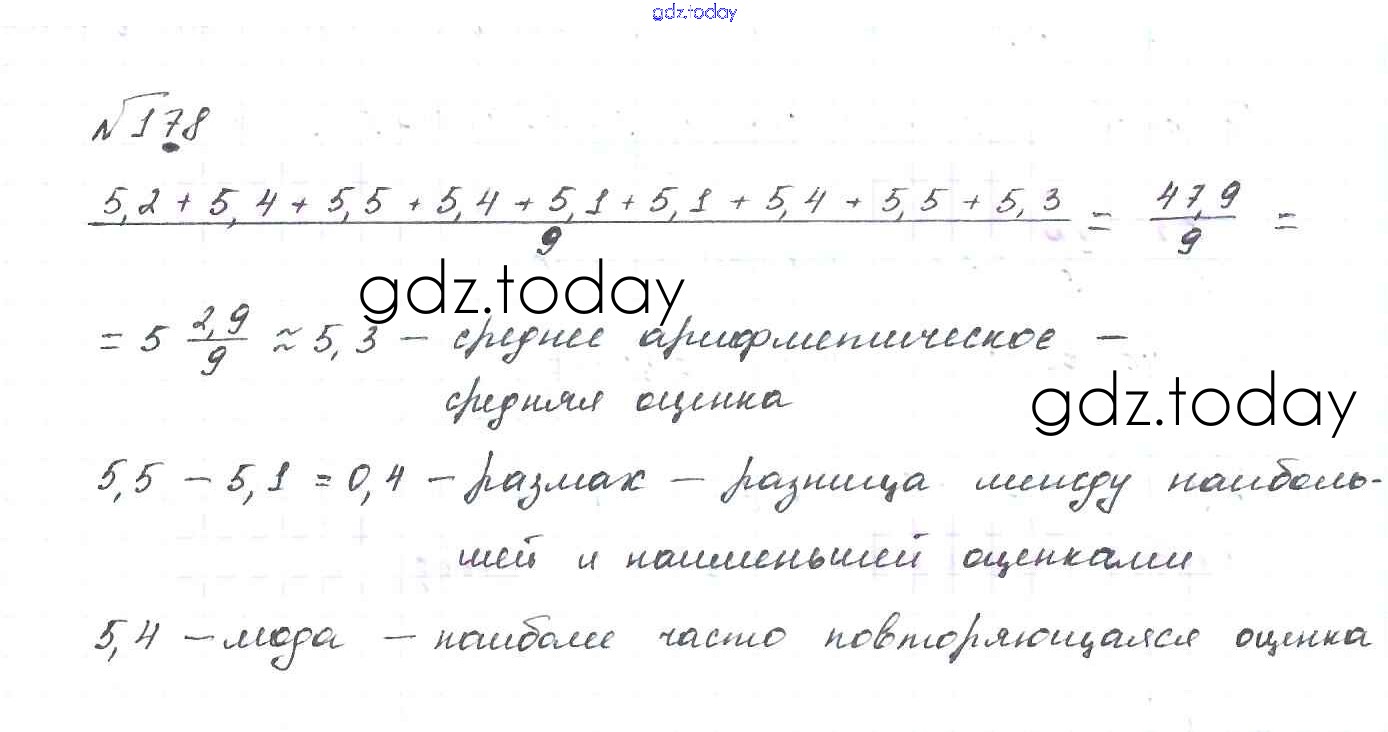 gdz.today
№178
5,2 + 5,4 + 5,5 + 5,4 + 5,1 + 5,1 + 5,4 + 5,5 + 5,3 / 9 = 47,9 / 9 =
gdz.today
= 5 2,9/9 ≈ 5,3 – среднее арифметическое –
средняя оценка
gdz.today
5,5 – 5,1 = 0,4 – размах – разница между наиболь-
шей и наименьшей оценками
5,4 – мода – наиболее часто повторяющаяся оценка